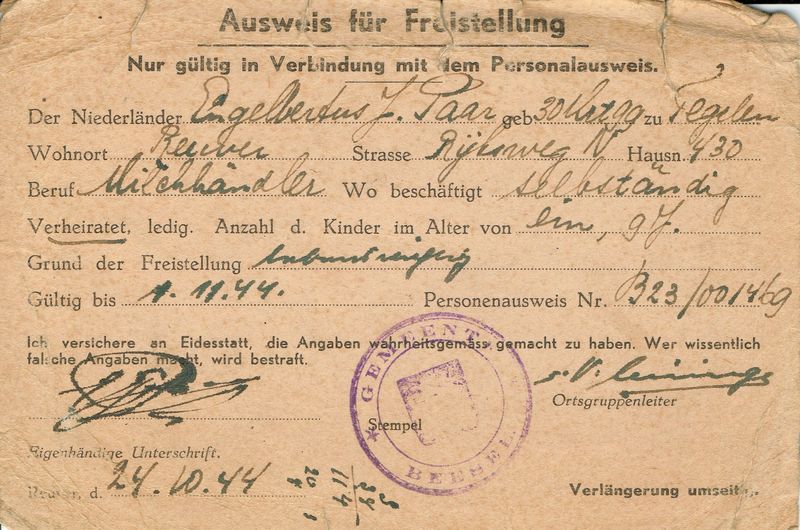 Ausweis für Freistellung
Nur gültig in Verbindung mit dem Personalausweis.
Der Niederländer Engelbertus J. Paar geb 30 Mrz 99 zu Tegelen
Wohnort Reuver Strasse Rijksweg N Hausn. 430
Beruf Milchhändler Wo beschäftigt selbständig
Verheiratet, ledig. Anzahl d. Kinder im Alter von ein, 9 J.
Grund der Freistellung lebenswichtig
Gültig bis 1.11.44. Personenausweis Nr. B23/001469
Ich versichere an Eidesstatt, die Angaben wahrheitsgemäss gemacht zu haben. Wer wissentlich
falsche Angaben macht, wird bestraft.
GEMEENTE
BEESEL
Stempel
Ortsgruppenleiter
Eigenhändige Unterschrift.
Reuver, d. 24.10.44
Verlängerung umseitig.